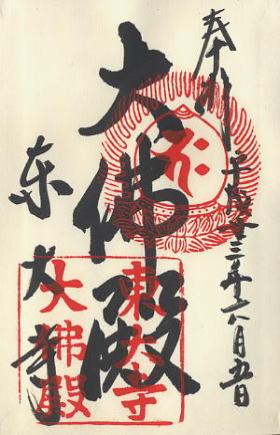 奉拝 平成廿三年六月五日
大佛殿
东大寺
東大寺
大佛殿